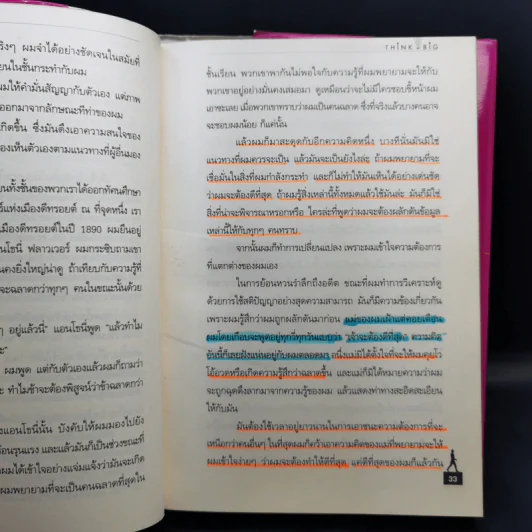 ริงๆ ผมจำได้อย่างชัดเจนในสมัยที่
ยนในชั้นกระทำกับผม
มให้คำมั่นสัญญากับตัวเอง แต่ภาพ
ออกมาจากลักษณะทีท่าของผม
กิดขึ้น ซึ่งมันดึงเอาความสนใจของ
องเห็นตัวเองตามแนวทางที่ผู้อื่นมอง
ยนทั้งชั้นของพวกเราได้ออกทัศนศึกษา
ร์แห่งเมืองดีทรอยต์ ณ ที่จุดหนึ่ง เรา
เมืองดีทรอยต์ในปี 1890 ผมยืนอยู่
นโธนี่ ฟลาวเวอร์ ผมกระซิบถามเขา
นคงยิ่งใหญ่น่าดู ถ้าเทียบกับความรู้ที่
จะฉลาดกว่าทุกๆ คนในขณะนั้นด้วย
อยู่แล้วนี่" แอนโธนี่พูด "แล้วทำไม
ะ"
ผมพูด แต่กับตัวเองแล้วผมก็ถามว่า
ทำไมข้าจะต้องพิสูจน์ว่าข้าฉลาดกว่า
งแอนโธนี่นั้น บังคับให้ผมมองไปยัง
อนรุนแรง และแล้วมันก็เป็นช่วงขณะที่
ผมได้เข้าใจอย่างแจ่มแจ้งว่ามันจะเกิด
ผมพยายามที่จะเป็นคนฉลาดที่สุดใน
THINK BIG
ชั้นเรียน พวกเขาพากันไม่พอใจกับความรู้ที่ผมพยายามจะให้กับ
พวกเขาอยู่อย่างมั่นคงเสมอมา ดูเหมือนว่าจะไม่มีใครชอบขี้หน้าผม
เอาซะเลย เมื่อพวกเขาทราบว่าผมเป็นคนฉลาด ซึ่งที่จริงแล้วบางคนอาจ
จะชอบผมน้อย ก็แค่นั้น
แล้วผมก็มาสะดุดกับอีกความคิดหนึ่ง บางทีนั่นมันมิใช่
แนวทางที่ผมควรจะเป็น แล้วมันจะเป็นยังไงล่ะ ถ้าผมพยายามที่จะ
เชื่อมั่นในสิ่งที่ผมกำลังกระทำ และก็ไม่ทำให้มันเห็นได้อย่างเด่นชัด
ว่าผมจะต้องดีที่สุด ถ้าผมรู้สิ่งเหล่านี้ทั้งหมดแล้วใช้มันล่ะ มันก็มิใช่
สิ่งที่น่าจะพิจารณาหรอกหรือ ใครล่ะที่พูดว่าผมจะต้องผลักดันข้อมูล
เหล่านี้ให้กับทุกๆ คนทราบ
จากนั้นผมก็ทำการเปลี่ยนแปลง เพราะผมเข้าใจความต้องการ
ที่แตกต่างของผมเอง
ในการย้อนทวนรำลึกถึงอดีต ขณะที่ผมทำการวิเคราะห์ดู
ด้วยการใช้สติปัญญาอย่างสุดความสามารถ มันก็มีความข้องเกี่ยวกัน
เพราะผมรู้สึกว่าผมถูกผลักดันมาก่อน แม่ของผมเฝ้าแต่คอยเตือน
ผมโดยเกือบจะพูดอยู่ทุกวี่ทุกวันเลยว่า "เจ้าจะต้องดีที่สุด" ความคิด
อันนี้ก็เลยฝังแน่นอยู่กับผมตลอดมา อนึ่งแม่มิได้ตั้งใจที่จะให้ผมคุยโว
โอ้อวดหรือเกิดความรู้สึกว่าฉลาดขึ้น และแม่ก็มิได้หมายความว่าผม
จะถูกฉุดดึงลากมาจากความรู้ของผม แล้วแสดงท่าทางสะอิดสะเอียน
ให้กับมัน
มันต้องใช้เวลาอยู่ยาวนานในการเอาชนะความต้องการที่จะ
เหนือกว่าคนอื่นๆ ในที่สุดผมก็คว้าเอาความคิดของแม่ที่พยายามจะให้
ผมเข้าใจง่ายๆ ว่าผมจะต้องทำให้ดีที่สุด แต่ดีที่สุดของผมก็แล้วกัน
33